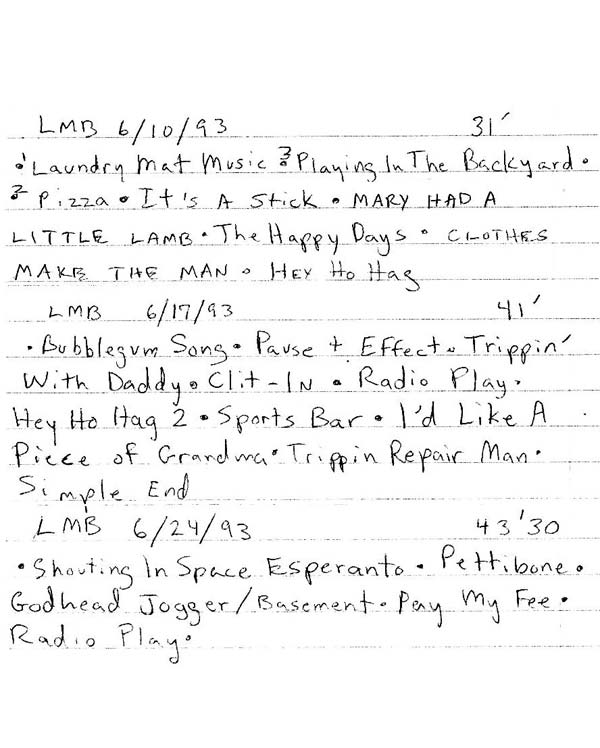 LMB 6/10/93 31′
• Laundry Mat Music ? Playing In The Backyard •
? Pizza • It's A Stick • MARY HAD A
LITTLE LAMB • The Happy Days • CLOTHES
MAKE THE MAN • HEY Ho Hag
LMB 6/17/93 41′
• Bubblegum Song • Pause + Effect • Trippin'
With Daddy • Clit-IN • Radio Play •
Hey Ho Hag 2 • Sports Bar • I'd Like A
Piece of Grandma • Trippin Repair Man •
Simple End
LMB 6/24/93 43′30
• Shouting In Space Esperanto • Pettibone •
Godhead Jogger/Basement • Pay My Fee •
Radio Play •